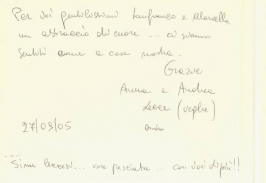 Per voi gentilissimi Gianfranco e Marcella
un abbraccio di cuore ... ci siamo
sentiti come a casa nostra.
Grazie
Anna e Andrea
Lecce (Veglie)
27/03/05
.... con voi di più!!